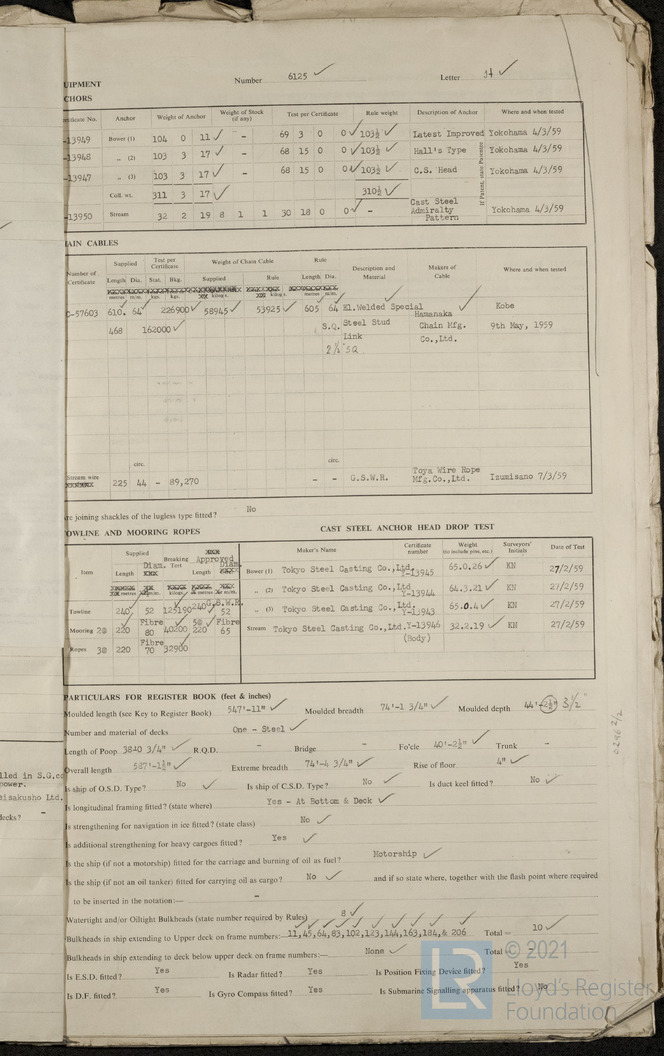 UIPMENT
Number 6125 ✓ Letter 34 ✓
CHORS
tificate No. Anchor Weight of Anchor Weight of Stock (if any) Test per Certificate Rule weight Description of Anchor Where and when tested
-13949 Bower (1) 104 0 11 ✓ - 69 3 0 0 ✓ 103½ ✓ Latest Improved Yokohama 4/3/59
-13948 „ (2) 103 3 17 ✓ - 68 15 0 0 ✓ 103½ ✓ Hall's Type Yokohama 4/3/59
-13947 „ (3) 103 3 17 ✓ - 68 15 0 0 ✓ 103½ ✓ C.S. Head Yokohama 4/3/59
If Patent, state Patentee
Coll. wt. 311 3 17 ✓ 310½ ✓
-13950 Stream 32 2 19 8 1 1 30 18 0 0 ✓ - Cast Steel Admiralty Pattern Yokohama 4/3/59
AIN CABLES
Number of Certificate Supplied Test per Certificate Weight of Chain Cable Rule Description and Material Makers of Cable Where and when tested
Length Dia. Stat. Bkg. Supplied Rule Length Dia.
metres m/m. kgs. kgs. kilogs. kilogs. metres m/m.
O-57603 610. 64 226900 ✓ 58945 ✓ 53925 ✓ 605 64 El.Welded Special Hamanaka Kobe
468 162000 ✓ S.Q. Steel Stud Chain Mfg. 9th May, 1959
Link Co.,Ltd.
2½" SQ
circ. circ.
Stream wire 225 44 - 89,270 - - G.S.W.R. Toya Wire Rope Mfg.Co.,Ltd. Izumisano 7/3/59
re joining shackles of the lugless type fitted? No
OWLINE AND MOORING ROPES
Item Supplied Breaking Test Approved
Length Diam. Length Diam.
metres m/m. kilogs. metres m/m.
Towline 240 52 125190 240 G.S.W.R. 52
Mooring 2@ 220 Fibre 80 40200 5@ 220 Fibre 65
Ropes 3@ 220 Fibre 70 32900
CAST STEEL ANCHOR HEAD DROP TEST
Maker's Name Certificate number Weight (to include pins, etc.) Surveyors' Initials Date of Test
Bower (1) Tokyo Steel Casting Co.,Ltd. Y-13945 65.0.26 ✓ KN 27/2/59
„ (2) Tokyo Steel Casting Co.,Ltd Y-13944 64.3.21 ✓ KN 27/2/59
„ (3) Tokyo Steel Casting Co.,Ltd. Y-13943 65.0.4 ✓ KN 27/2/59
Stream Tokyo Steel Casting Co.,Ltd. Y-13946 32.2.19 ✓ KN 27/2/59
(Body)
PARTICULARS FOR REGISTER BOOK (feet & inches)
Moulded length (see Key to Register Book) 547'-11" ✓ Moulded breadth 74'-1 3/4" ✓ Moulded depth 44'-2½" 3½"
Number and material of decks One - Steel ✓
Length of Poop 3840 3/4" ✓ R.Q.D. - Bridge - Fo'cle 40'-2½" ✓ Trunk -
Overall length 587'-1½" ✓ Extreme breadth 74'-4 3/4" ✓ Rise of floor 4" ✓
Is ship of O.S.D. Type? No ✓ Is ship of C.S.D. Type? No ✓ Is duct keel fitted? No ✓
Is longitudinal framing fitted? (state where) Yes - At Bottom & Deck ✓
Is strengthening for navigation in ice fitted? (state class) No ✓
Is additional strengthening for heavy cargoes fitted? Yes ✓
Is the ship (if not a motorship) fitted for the carriage and burning of oil as fuel? Motorship ✓
Is the ship (if not an oil tanker) fitted for carrying oil as cargo? No ✓ and if so state where, together with the flash point where required
to be inserted in the notation:— -
Watertight and/or Oiltight Bulkheads (state number required by Rules) 8 ✓
Bulkheads in ship extending to Upper deck on frame numbers:— 11,45,64,83,102,123,144,163,184,& 206 Total = 10 ✓
Bulkheads in ship extending to deck below upper deck on frame numbers:— None ✓ Total = -
Is E.S.D. fitted? Yes Is Radar fitted? Yes Is Position Fixing Device fitted? Yes
Is D.F. fitted? Yes Is Gyro Compass fitted? Yes Is Submarine Signalling apparatus fitted? No
lled in S.G.co
power.
isakusho Ltd.
decks? -
LR © 2021
Lloyd's Register
Foundation